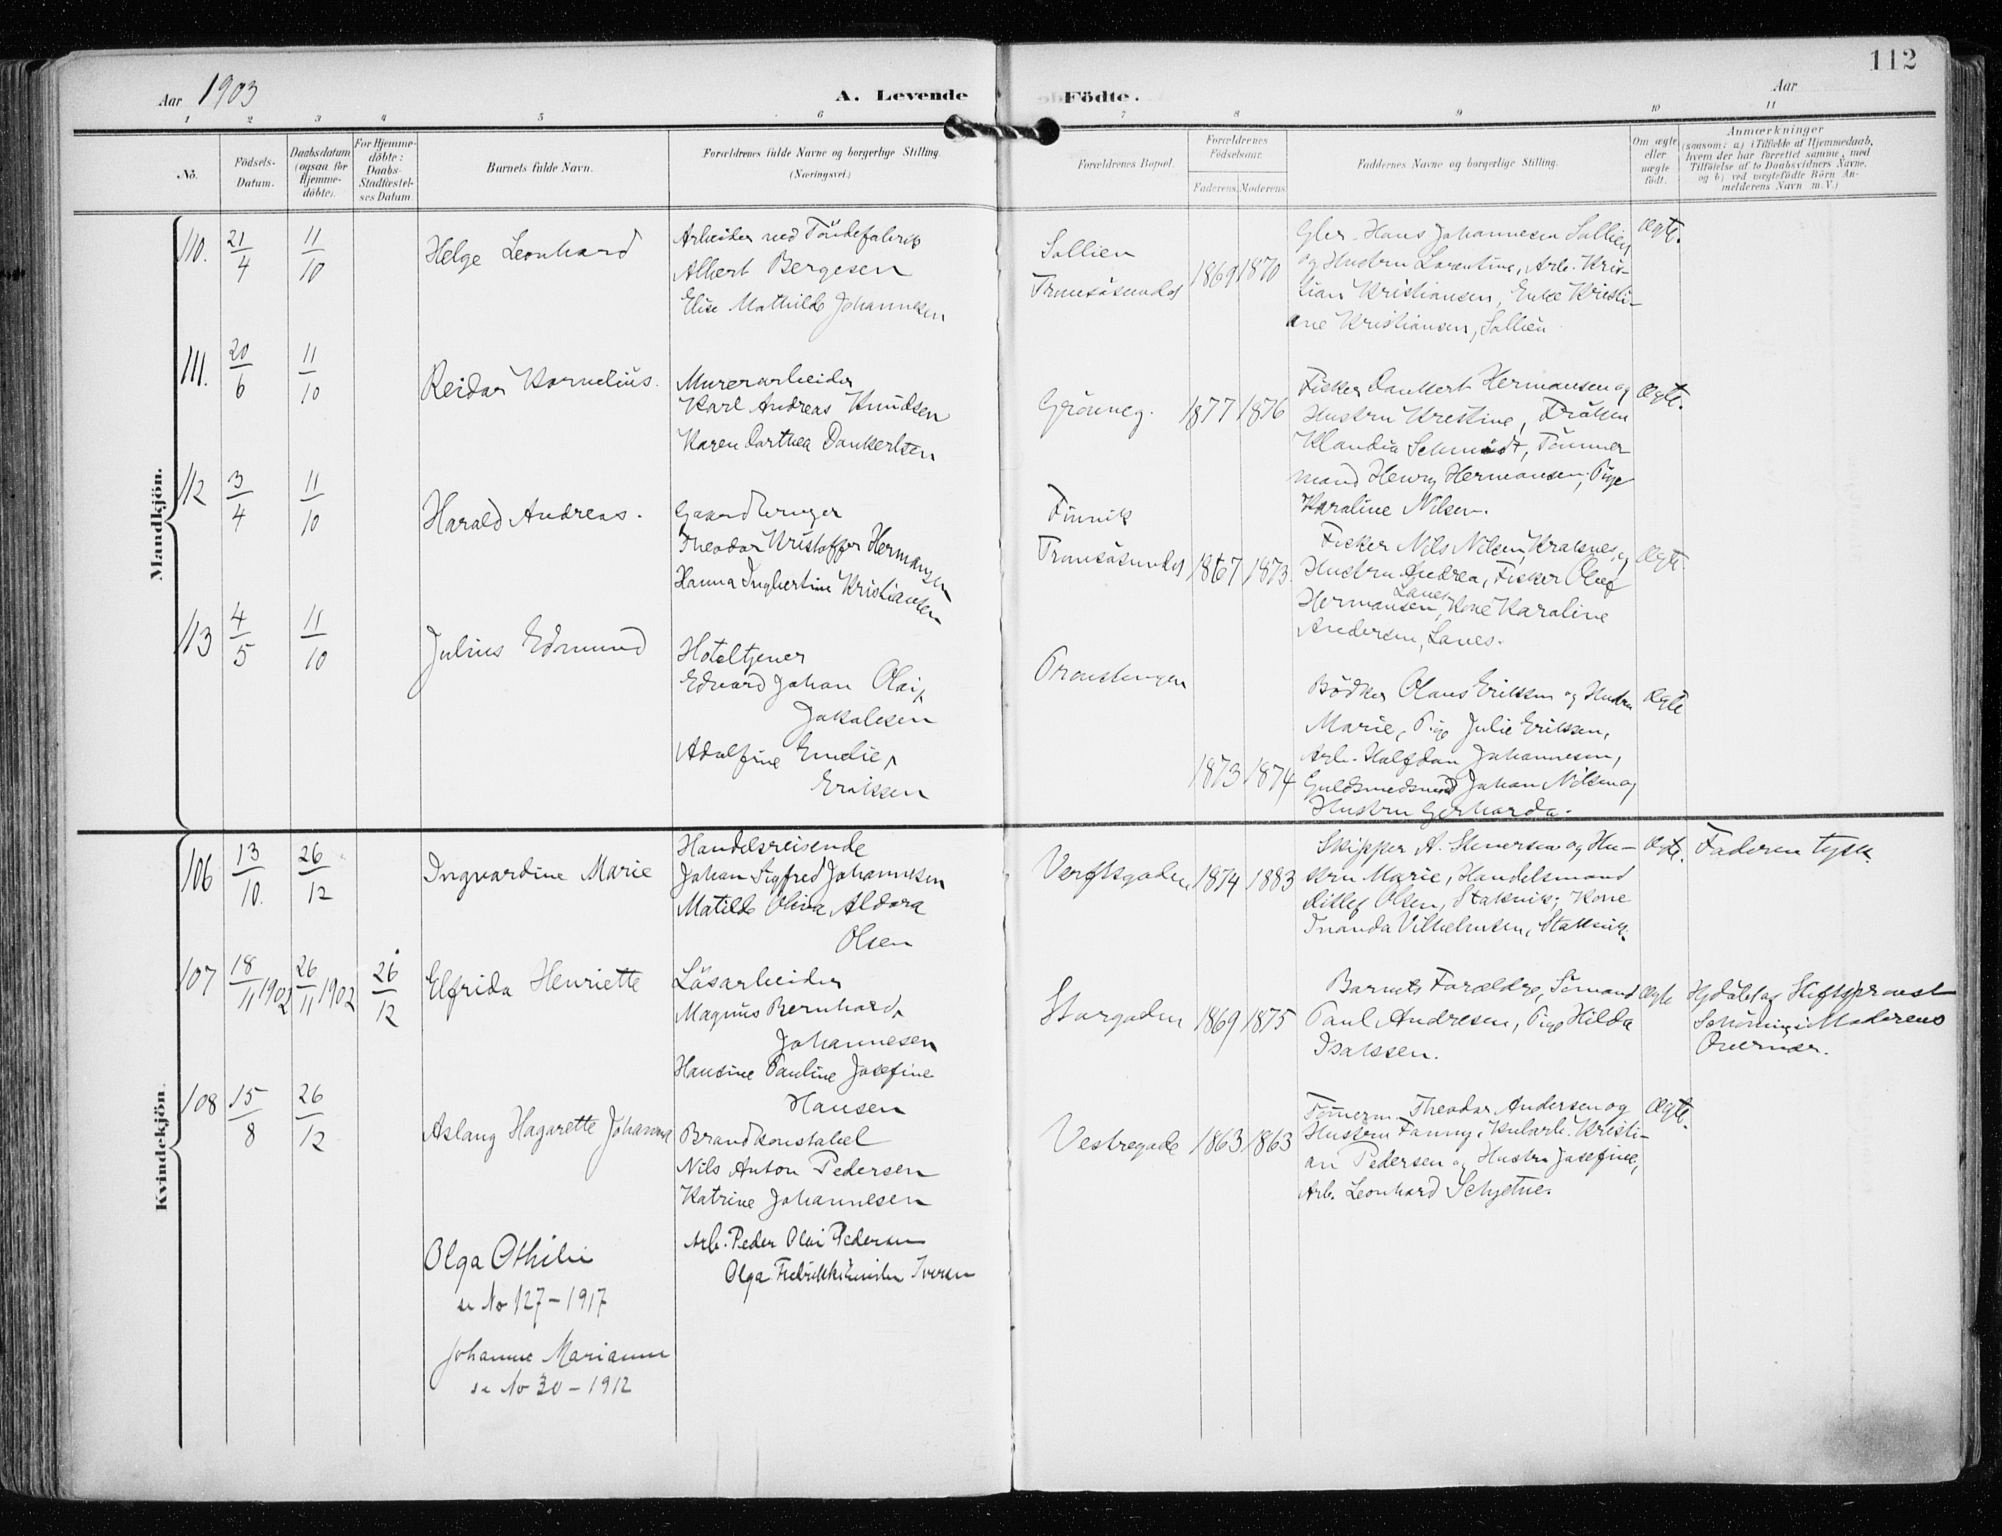 112
Aar 1903
A. Levende
Födte.
Aar
1 2 3 4 5 6 7 8 9 10 11
No.
Födsels-
Datum.
Daabsdatum
(ogsaa for
Hjemme-
döbte).
For Hjemme-
döbte:
Daabs-
Stadfæstel-
ses Datum
Barnets fulde Navn.
Forældrenes fulde Navne og borgerlige Stilling
(Næringsvei.)
Forældrenes Bopæl.
Forældrenes
Födselsaar.
Faderens. Moderens.
Faddernes Navne og borgerlige Stilling.
Om ægte
eller
uægte
födt.
Anmærkninger
(saasom: a) i Tilfælde af Hjemmedaab,
hvem der har forrettet samme, med
Tilföielse af to Daabsvidners Navne,
og b) ved uægtefödte Börn An-
melderens Navn m. V.)
Mandkjön.
110. 21/4 11/10
Helge Leonhard
Arbeider ved Töndefabrik
Albert Bergesen
Elise Mathilde Johannesen
Sollien
Tromsösundet
1869 1870
Gbr. Hans Johannesen Sollien
og Hustru Laurentine, Arb. Kris-
tian Kristiansen, Enke Kristi-
ane Kristiansen, Sollien
Ægte.
111. 20/6 11/10
Reidar Kornelius.
Murerarbeider
Karl Andreas Knudsen
Karen Dorthea Dankertsen
Grönneg.
1877 1876
Fisker Dankert Hermansen og
Hustru Kristine, Fröken
Klaudia Schmidt, Tömmer
mand Henry Hermansen, Pige
Karoline Nilsen.
Ægte.
112 3/4 11/10
Harald Andreas.
Gaardbruger
Theodor Kristoffer Hermansen
Hanna Ingbertine Kristiansen
Finvik
Tromsösundet
1867 1873
Fisker Nils Nilsen, Kraknes og
Hustru Andrea, Fisker Oluf
Hermansen, Lanes, Kone Karoline
Andersen, Lanes.
Ægte
113 4/5 11/10
Julius Edmund
Hoteltjener
Edvard Johan Olai
Jakobsen
Adolfine Emelie
Eriksen
Pronstengen
1873 1874
Bödker Olaus Eriksen og Hustru
Marie, Pige Julie Eriksen,
Arb. Halfdan Johannesen,
Guldsmedsvend Johan Nilsen og
Hustru Gerharda.
Ægte
Kvindekjön.
106 13/10. 26/12
Ingvardine Marie
Handelsreisende
Johan Sigfred Johannesen
Matilde Oliva Aldora
Olsen
Verftsgaden
1874 1883
Skipper A. Stenersen og Hu-
stru Marie, Handelsmand
Ditlef Olsen, Stakvik; Kone
Inanda Vilhelmsen, Stakvik.
Ægte.
Faderen tysk
107 18/11 1902 26/11 1902 26/12
Elfrida Henriette
Lösarbeider
Magnus Bernhard
Johannesen
Hansine Pauline Josefine
Hansen
Storgaden
1869 1875
Barnets Forældre, Sömand
Paul Andresen, Pige Hilda
Isaksen.
Ægte
Hjdöbt af Stiftsprovst
Schöning i Moderens
Overvær.
108 15/8 26/12
Aslaug Hagarette Johanna
Brandkonstabel
Nils Anton Pedersen
Katrine Johannesen
Vestregade
1863 1863
Tömerm. Theodor Andersen og
Hustru Fanny, Kularb. Kristi-
an Pedersen og Hustru Josefine,
Arb. Leonhard Schjetne.
Ægte.
Olga Othilie
se No 127 - 1917
Arb. Peder Olai Pedersen
Olga Iversen
Johanne Marianne
se No 30 - 1912